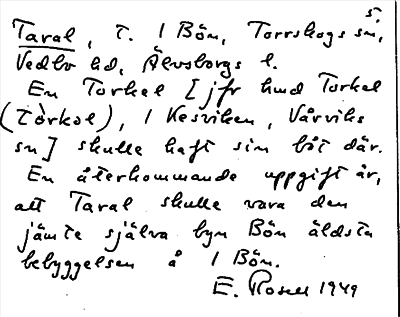 5.
Taral, t. 1 Bön, Torrskogs sn,
Vedbo hd, Älvsborgs l.
En Torkel [jfr hmd Torkel
(tòrkəl), 1 Kesviken, Vårviks
sn] skulle haft sin båt där.
En återkommande uppgift är,
att Taral skulle vara den
jämte själva byn Bön äldsta
bebyggelsen å 1 Bön.
E. Rosell 1949